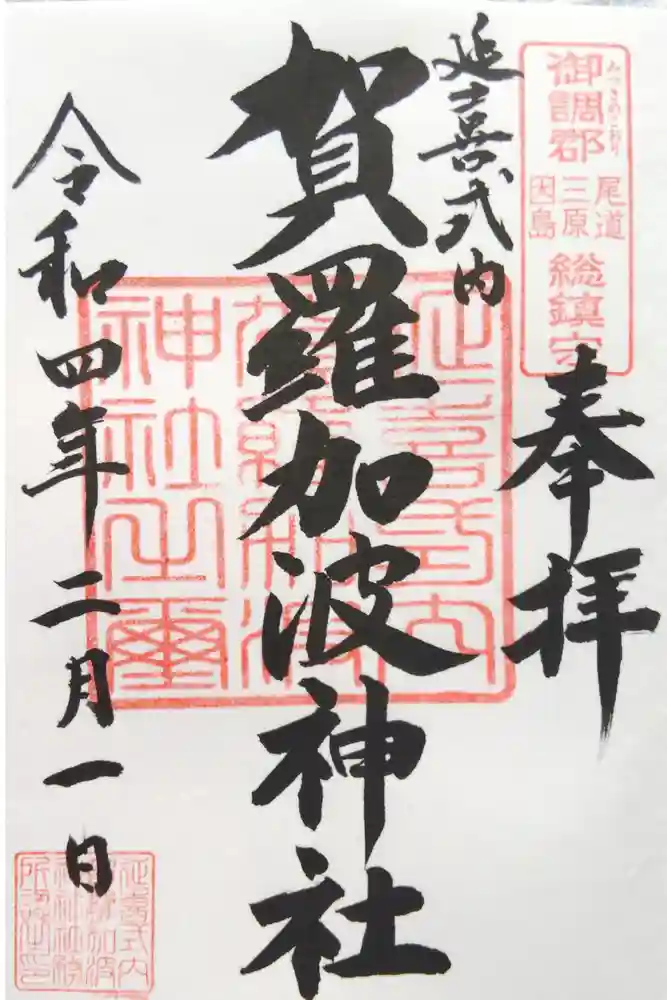 御調郡
みつきのこおり
尾道
三原
因島
総鎮守
奉拝
延喜式内
賀羅加波神社
延喜式内
賀羅加波
神社之璽
令和四年二月一日
延喜式内